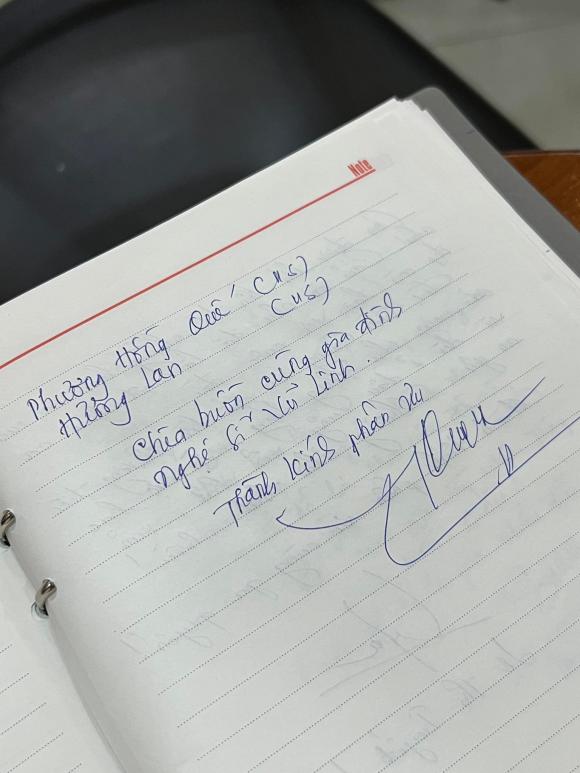 Note
Phương Hồng Quế (US)
Hương Lan (US)
Chia buồn cùng gia đình
Nghệ sĩ Vũ Linh.
Thành kính phân ưu